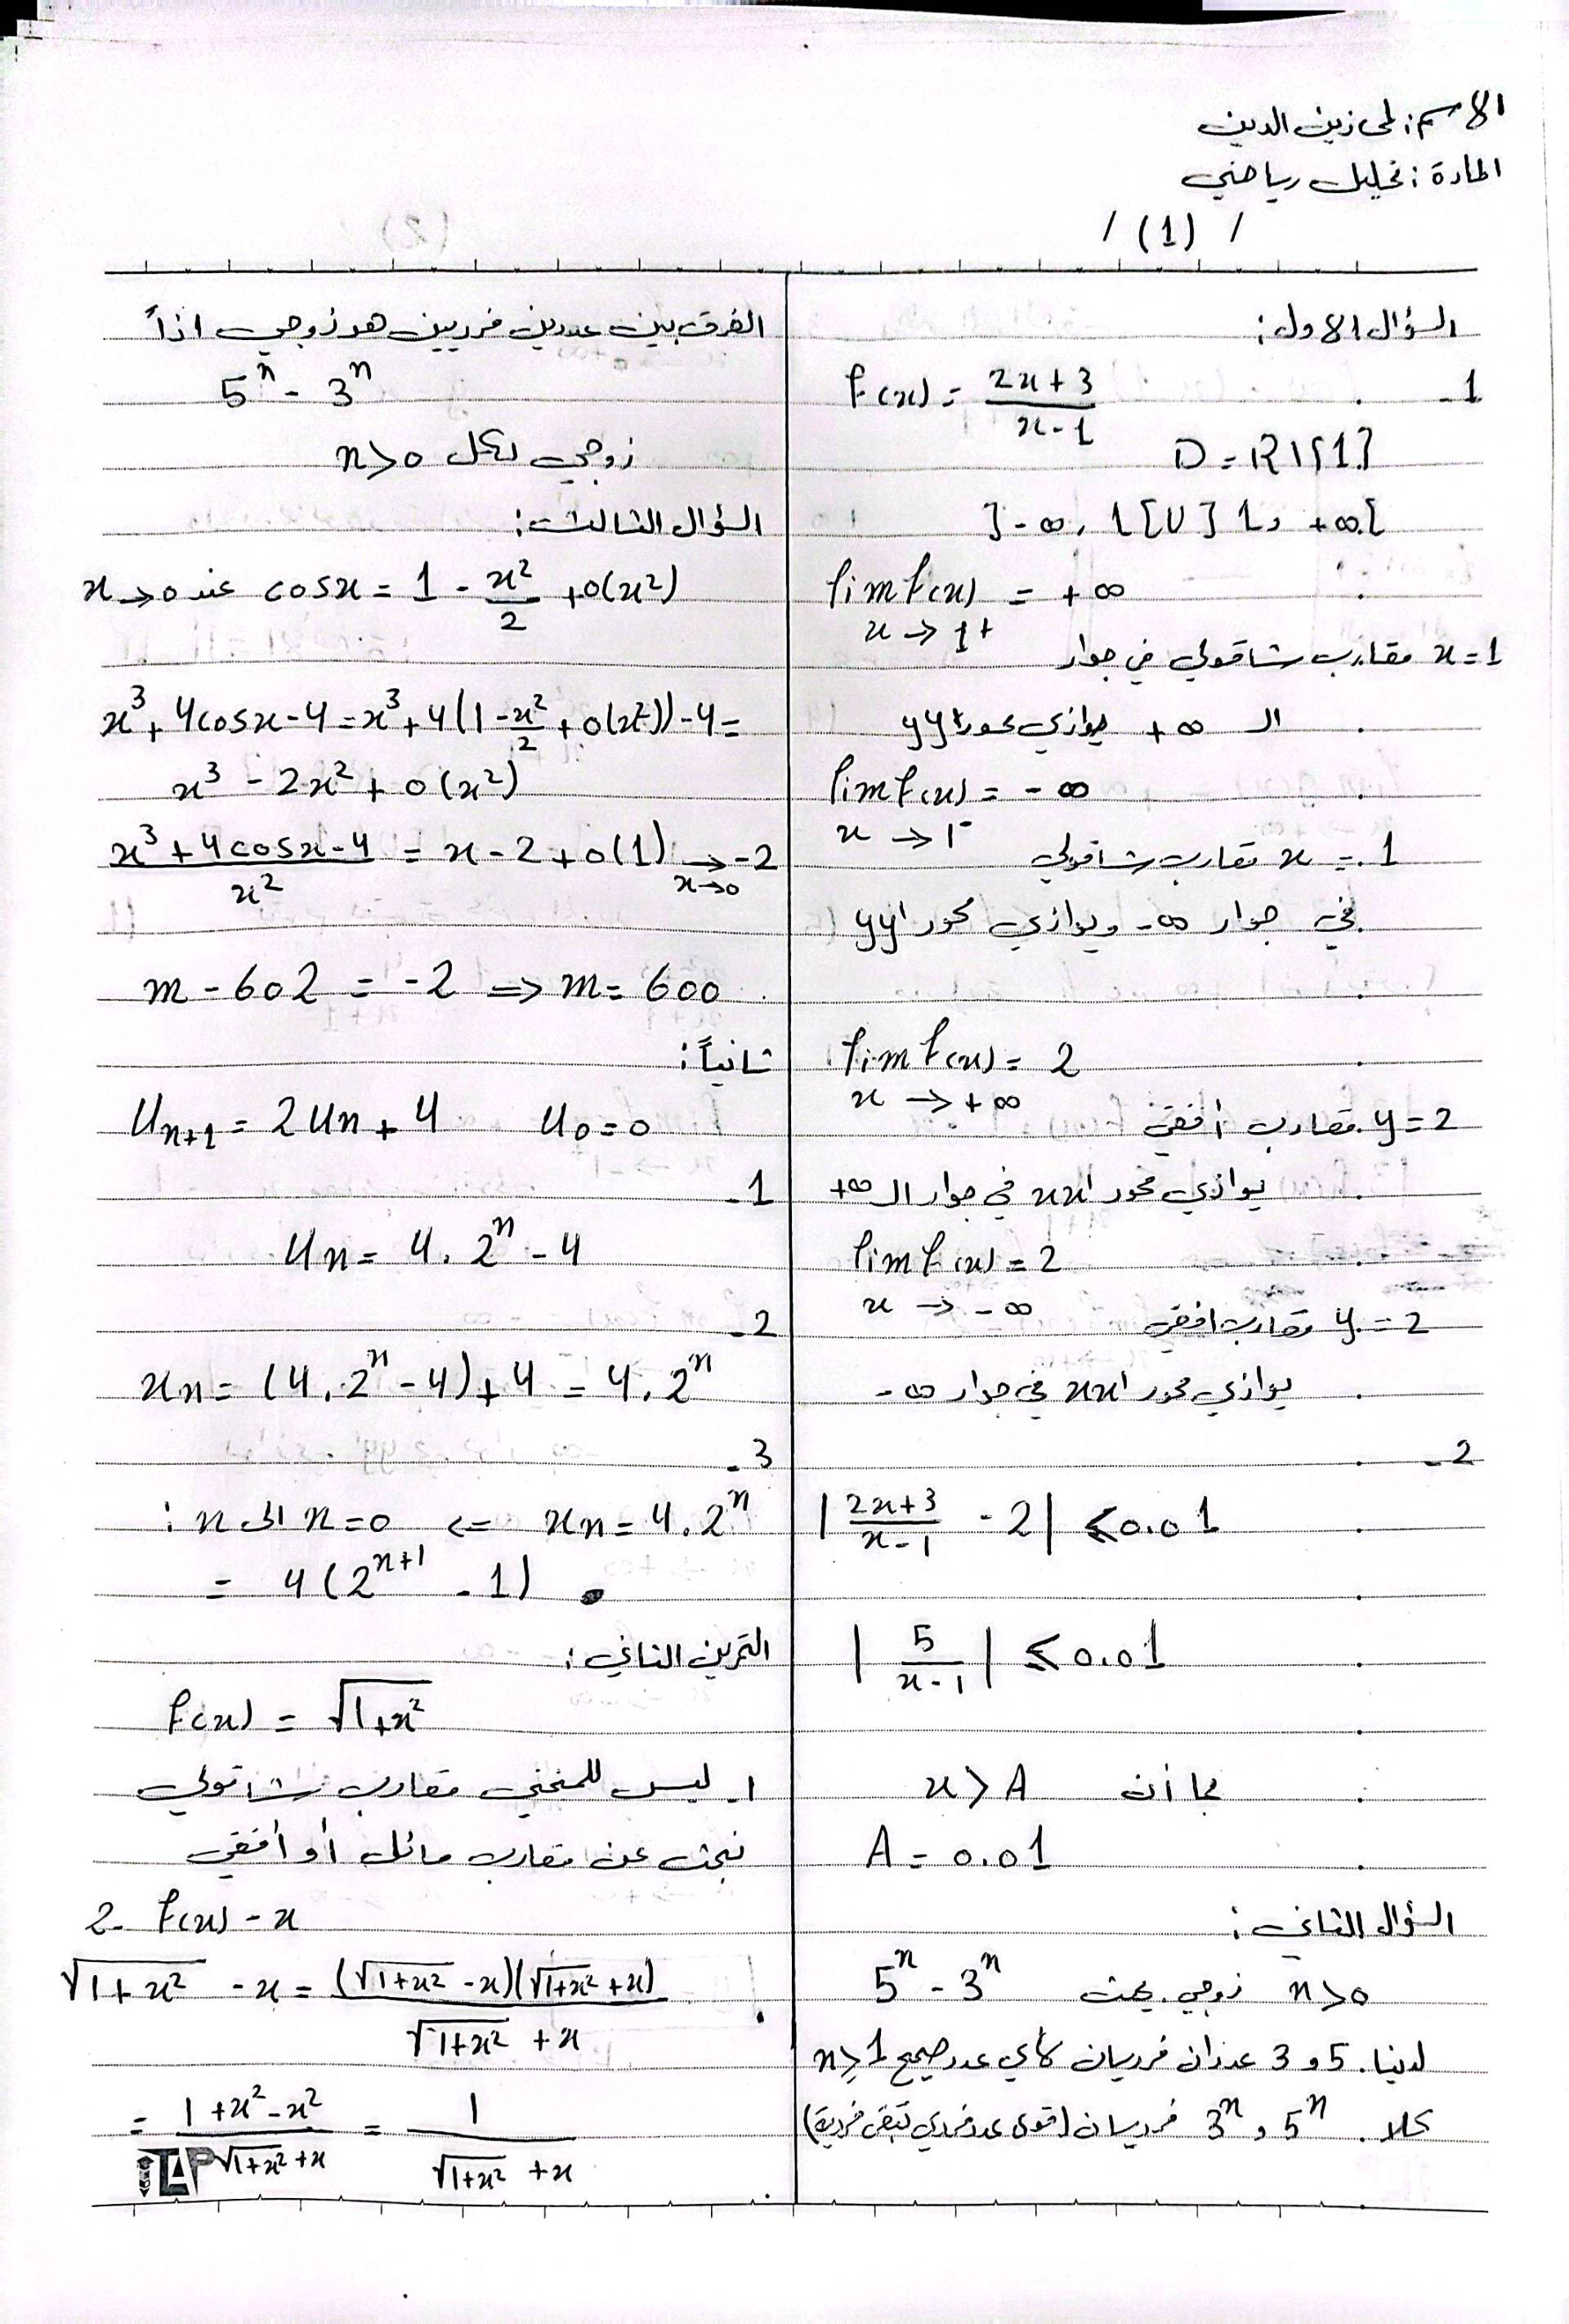 الاسم: لمى زين الدين
المادة: تحليل رياضي
/ (1) /
السؤال الاول:
1- f(x) = (2x+3)/(x-1)
D = R\{1}
]-∞, 1[ U ]1, +∞[
lim f(x) = +∞
x → 1+
x=1 مقارب شاقولي في جوار
الـ +∞ يوازي محور yy'
lim f(x) = -∞
x → 1-
x = 1 تقارب شاقولي
في جوار -∞ ويوازي محور yy'
lim f(x) = 2
x → +∞
y=2 مقارب أفقي
يوازي محور xx' في جوار الـ +∞
lim f(x) = 2
x → -∞
y = 2 تقارب افقي
يوازي محور xx' في جوار -∞
2-
|(2x+3)/(x-1) - 2| ≤ 0.01
|5/(x-1)| ≤ 0.01
بما أن x > A
A = 0.01
السؤال الثاني:
5^n - 3^n
n>0 زوجي بحت
لدينا 5 و 3 عددان فرديان لأي عدد صحيح n≥1
كلا 5^n و 3^n فرديان (قوى عدد فردي تبقى فردية)
الفرق بين عددين فرديين هو زوجي اذاً
5^n - 3^n
زوجي لكل n>0
السؤال الثالث:
cosx = 1 - x²/2 + o(x²) عند x→0
x³ + 4cosx - 4 = x³ + 4(1 - x²/2 + o(x²)) - 4 =
x³ - 2x² + o(x²)
(x³ + 4cosx - 4)/x² = x - 2 + o(1) → -2
x→0
m - 602 = -2 => m = 600
ثانياً:
U_{n+1} = 2Un + 4 U0 = 0
1-
Un = 4 . 2^n - 4
2-
xn = (4 . 2^n - 4) + 4 = 4 . 2^n
3-
xn = 4 . 2^n <= n=0 الى n :
= 4(2^{n+1} - 1)
التمرين الثاني:
f(x) = √(1+x²)
1- ليس للمنحني مقارب شاقولي
نبحث عن مقارب مائل أو أفقي
2- f(x) - x
√(1+x²) - x = (√(1+x²) - x)(√(1+x²) + x) / (√(1+x²) + x)
= (1+x²-x²)/(√(1+x²)+x) = 1/(√(1+x²) + x)